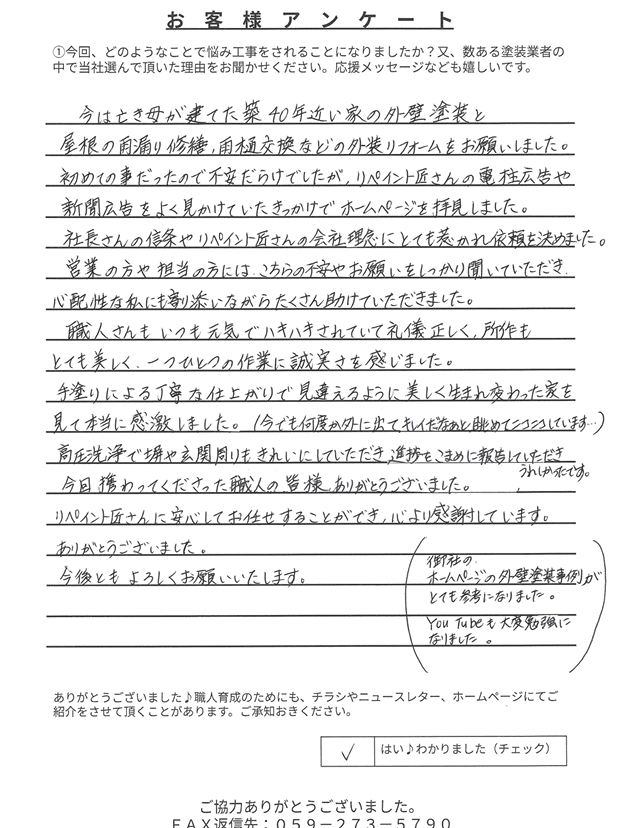 お客様アンケート
①今回、どのようなことで悩み工事をされることになりましたか？又、数ある塗装業者の
中で当社選んで頂いた理由をお聞かせください。応援メッセージなども嬉しいです。
今は亡き母が建てた築40年近い家の外壁塗装と
屋根の雨漏り修繕,雨樋交換などの外装リフォームをお願いしました。
初めての事だったので不安だらけでしたが,リペイント匠さんの電柱広告や
新聞広告をよく見かけていたきっかけでホームページを拝見しました。
社長さんの信条やリペイント匠さんの会社理念にとても惹かれ依頼を決めました。
営業の方や担当の方には、こちらの不安やお願いをしっかり聞いていただき、
心配性な私にも寄り添いながらたくさん助けていただきました。
職人さんもいつも元気でハキハキされていて礼儀正しく,所作も
とても美しく、一つひとつの作業に誠実さを感じました。
手塗りによる丁寧な仕上がりで見違えるように美しく生まれ変わった家を
見て本当に感激しました。(今でも何度か外に出て,キレイだなぁと眺めてニコニコしています…)
高圧洗浄で塀や玄関周りもきれいにしていただき,進捗をこまめに報告していただき
うれしかったです。
今回携わってくださった職人の皆様,ありがとうございました。
リペイント匠さんに安心してお任せすることができ,心より感謝しています。
ありがとうございました。
今後ともよろしくお願いいたします。
(御社の
ホームページの外壁塗装事例が
とても参考になりました。
YouTubeも大変勉強に
なりました。)
ありがとうございました♪職人育成のためにも、チラシやニュースレター、ホームページにてご
紹介をさせて頂くことがあります。ご承知おきください。
✓ はい♪わかりました（チェック）
ご協力ありがとうございました。
ＦＡＸ返信先：０５９－２７３－５７９０